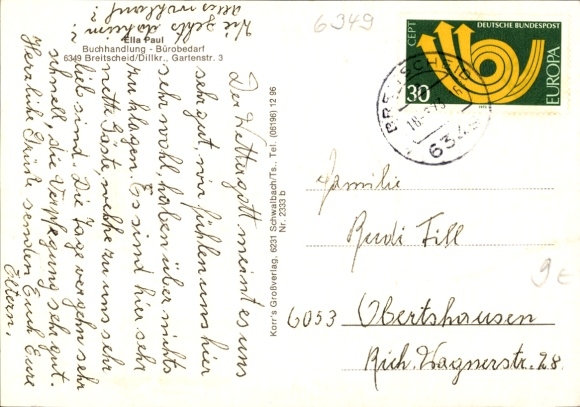 6349
Ella Paul
Buchhandlung - Bürobedarf
6349 Breitscheid/Dillkr., Gartenstr. 3
Der Wettergott meint es uns
sehr gut wir fühlen uns hier
sehr wohl, haben über nichts
zu klagen. Es sind hier sehr
nette Gäste, welche zu uns sehr
lieb sind. Die Tage vergehn sehr
schnell, die Verpflegung sehr gut.
Herzliche Grüße senden Euch Eure
Eltern,
Wie gehts daheim?
alles wohlauf?
Korr's Großverlag, 6231 Schwalbach/Ts., Tel. (06196) 12 96
Nr. 2333 b
CEPT
DEUTSCHE BUNDESPOST
EUROPA
30
BREITSCHEID
6349
Familie
Rudi Till
6053 Obertshausen
Rich. Wagnerstr. 28.
9€